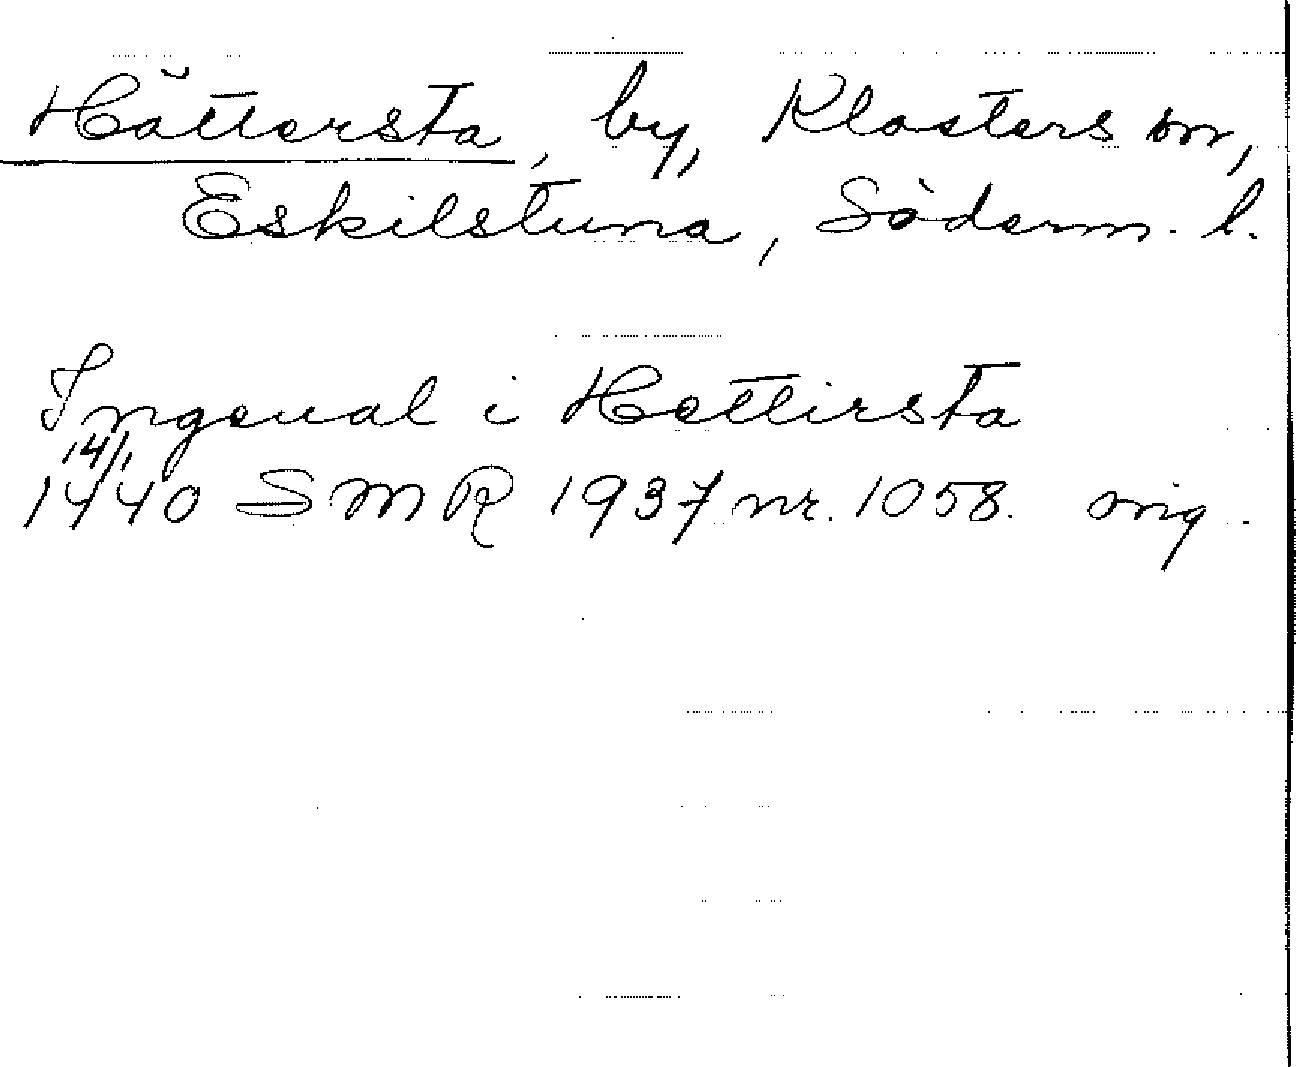 Hättersta, by, Klosters sn,
Eskilstuna, Söderm. l.
Ingeual i Hettirsta
14/1
1440 SMR 1937 nr. 1058. orig.